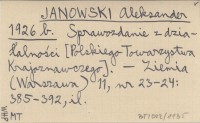 JANOWSKI Aleksander
1926 b. Sprawozdanie z dzia-
łalności [Polskiego Towarzystwa
Krajoznawczego]. — Ziemia
(Warszawa) 11, nr 23-24:
385-392, il.
WHP
MT